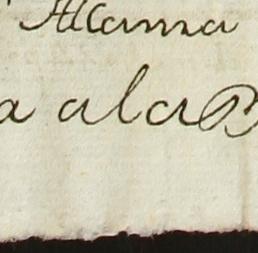 Allama
a ala P